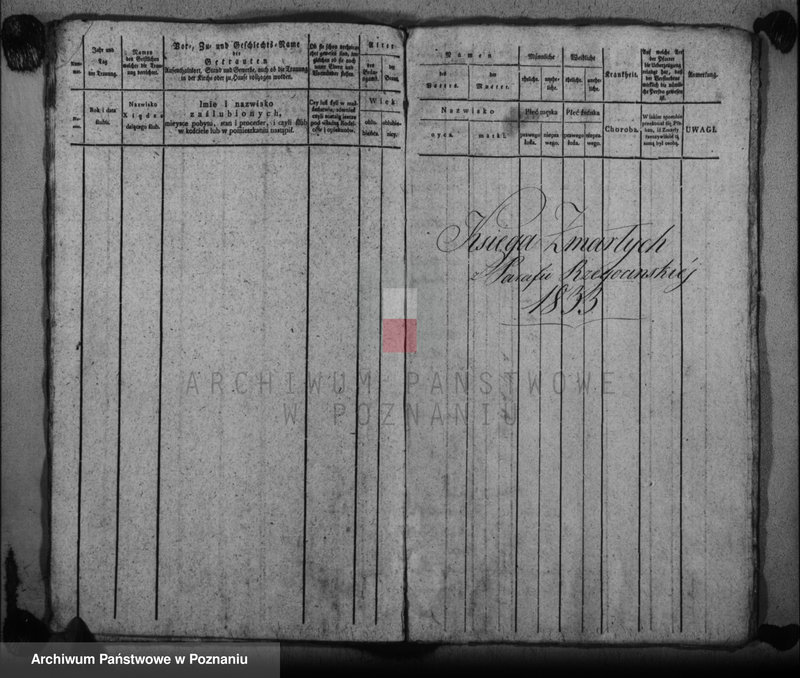 Jahr und
Tag
der Trauung.
Namen
des Geistlichen
welcher die Trau-
ung verrichtet.
Vor-, Zu- und Geschlechts-Name
der
Getrauten
Aufenthaltsort, Stand und Gewerbe, auch ob die Trauung
in der Kirche oder zu Hause vollzogen worden.
Ob sie schon verheira-
thet gewesen sind, im-
gleichen ob sie noch
unter Eltern oder
Vormünder stehen.
Alter
des
der
Braut.
Rok i data
ślubu.
Nazwisko
Xiędza
dającego ślub.
Imie i nazwisko
zaślubionych,
mieysce pobytu, stan i proceder, i czyli ślub
w kościele lub w pomieszkaniu nastąpił.
Czy iuż byli w mał-
żeństwie, również
czyli zostaią ieszcze
pod władzą Rodzi-
ców i opiekunów.
Wiek
oblu-
bieńca.
oblubie-
nicy.
Namen
des
Vaters.
der
Mutter.
Männliche
eheliche.
unehe-
liche.
Weibliche
eheliche.
unehe-
liche.
Krankheit.
Auf welche Art
der Pfarrer
die Ueberzeugung
erlangt hat, daß
der Verstorbene
wirklich die nämli-
che Person gewesen
ist.
Anmerkung.
Nazwisko
oyca.
matki.
Płeć męska
prawego
łoża.
niepra-
wego.
Płeć żeńska
prawego
łoża.
niepra-
wego.
Choroba.
W iakim sposobie
przekonał się Ple-
ban, iż Zmarły
rzeczywiście tą
samą był osobą.
UWAGI.
Księga Zmarłych
z Parafii Rzegocinskiéj
1833
ARCHIWUM PAŃSTWOWE
W POZNANIU
Archiwum Państwowe w Poznaniu